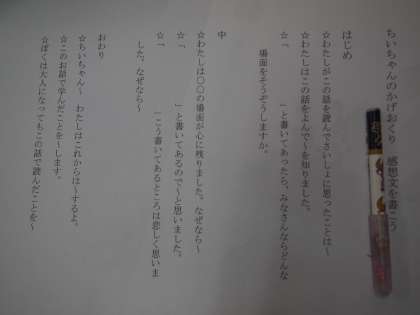 ちいちゃんのかげおくり 感想文を書こう
はじめ
☆わたしがこの話を読んでさいしょに思ったことは～
☆わたしはこの話をよんで～を知りました。
☆「　　　　」と書いてあったら、みなさんならどんな
場面をそうぞうしますか。
中
☆わたしは〇〇の場面が心に残りました。なぜなら～
☆「　　　　」と書いてあるので～と思いました。
☆「　　　　」こう書いてあるところは悲しく思いま
した。なぜなら～
おわり
☆ちいちゃん～ わたしはこれからは～するよ。
☆このお話で学んだことを～します。
☆ぼくは大人になってもこの話で読んだことを～